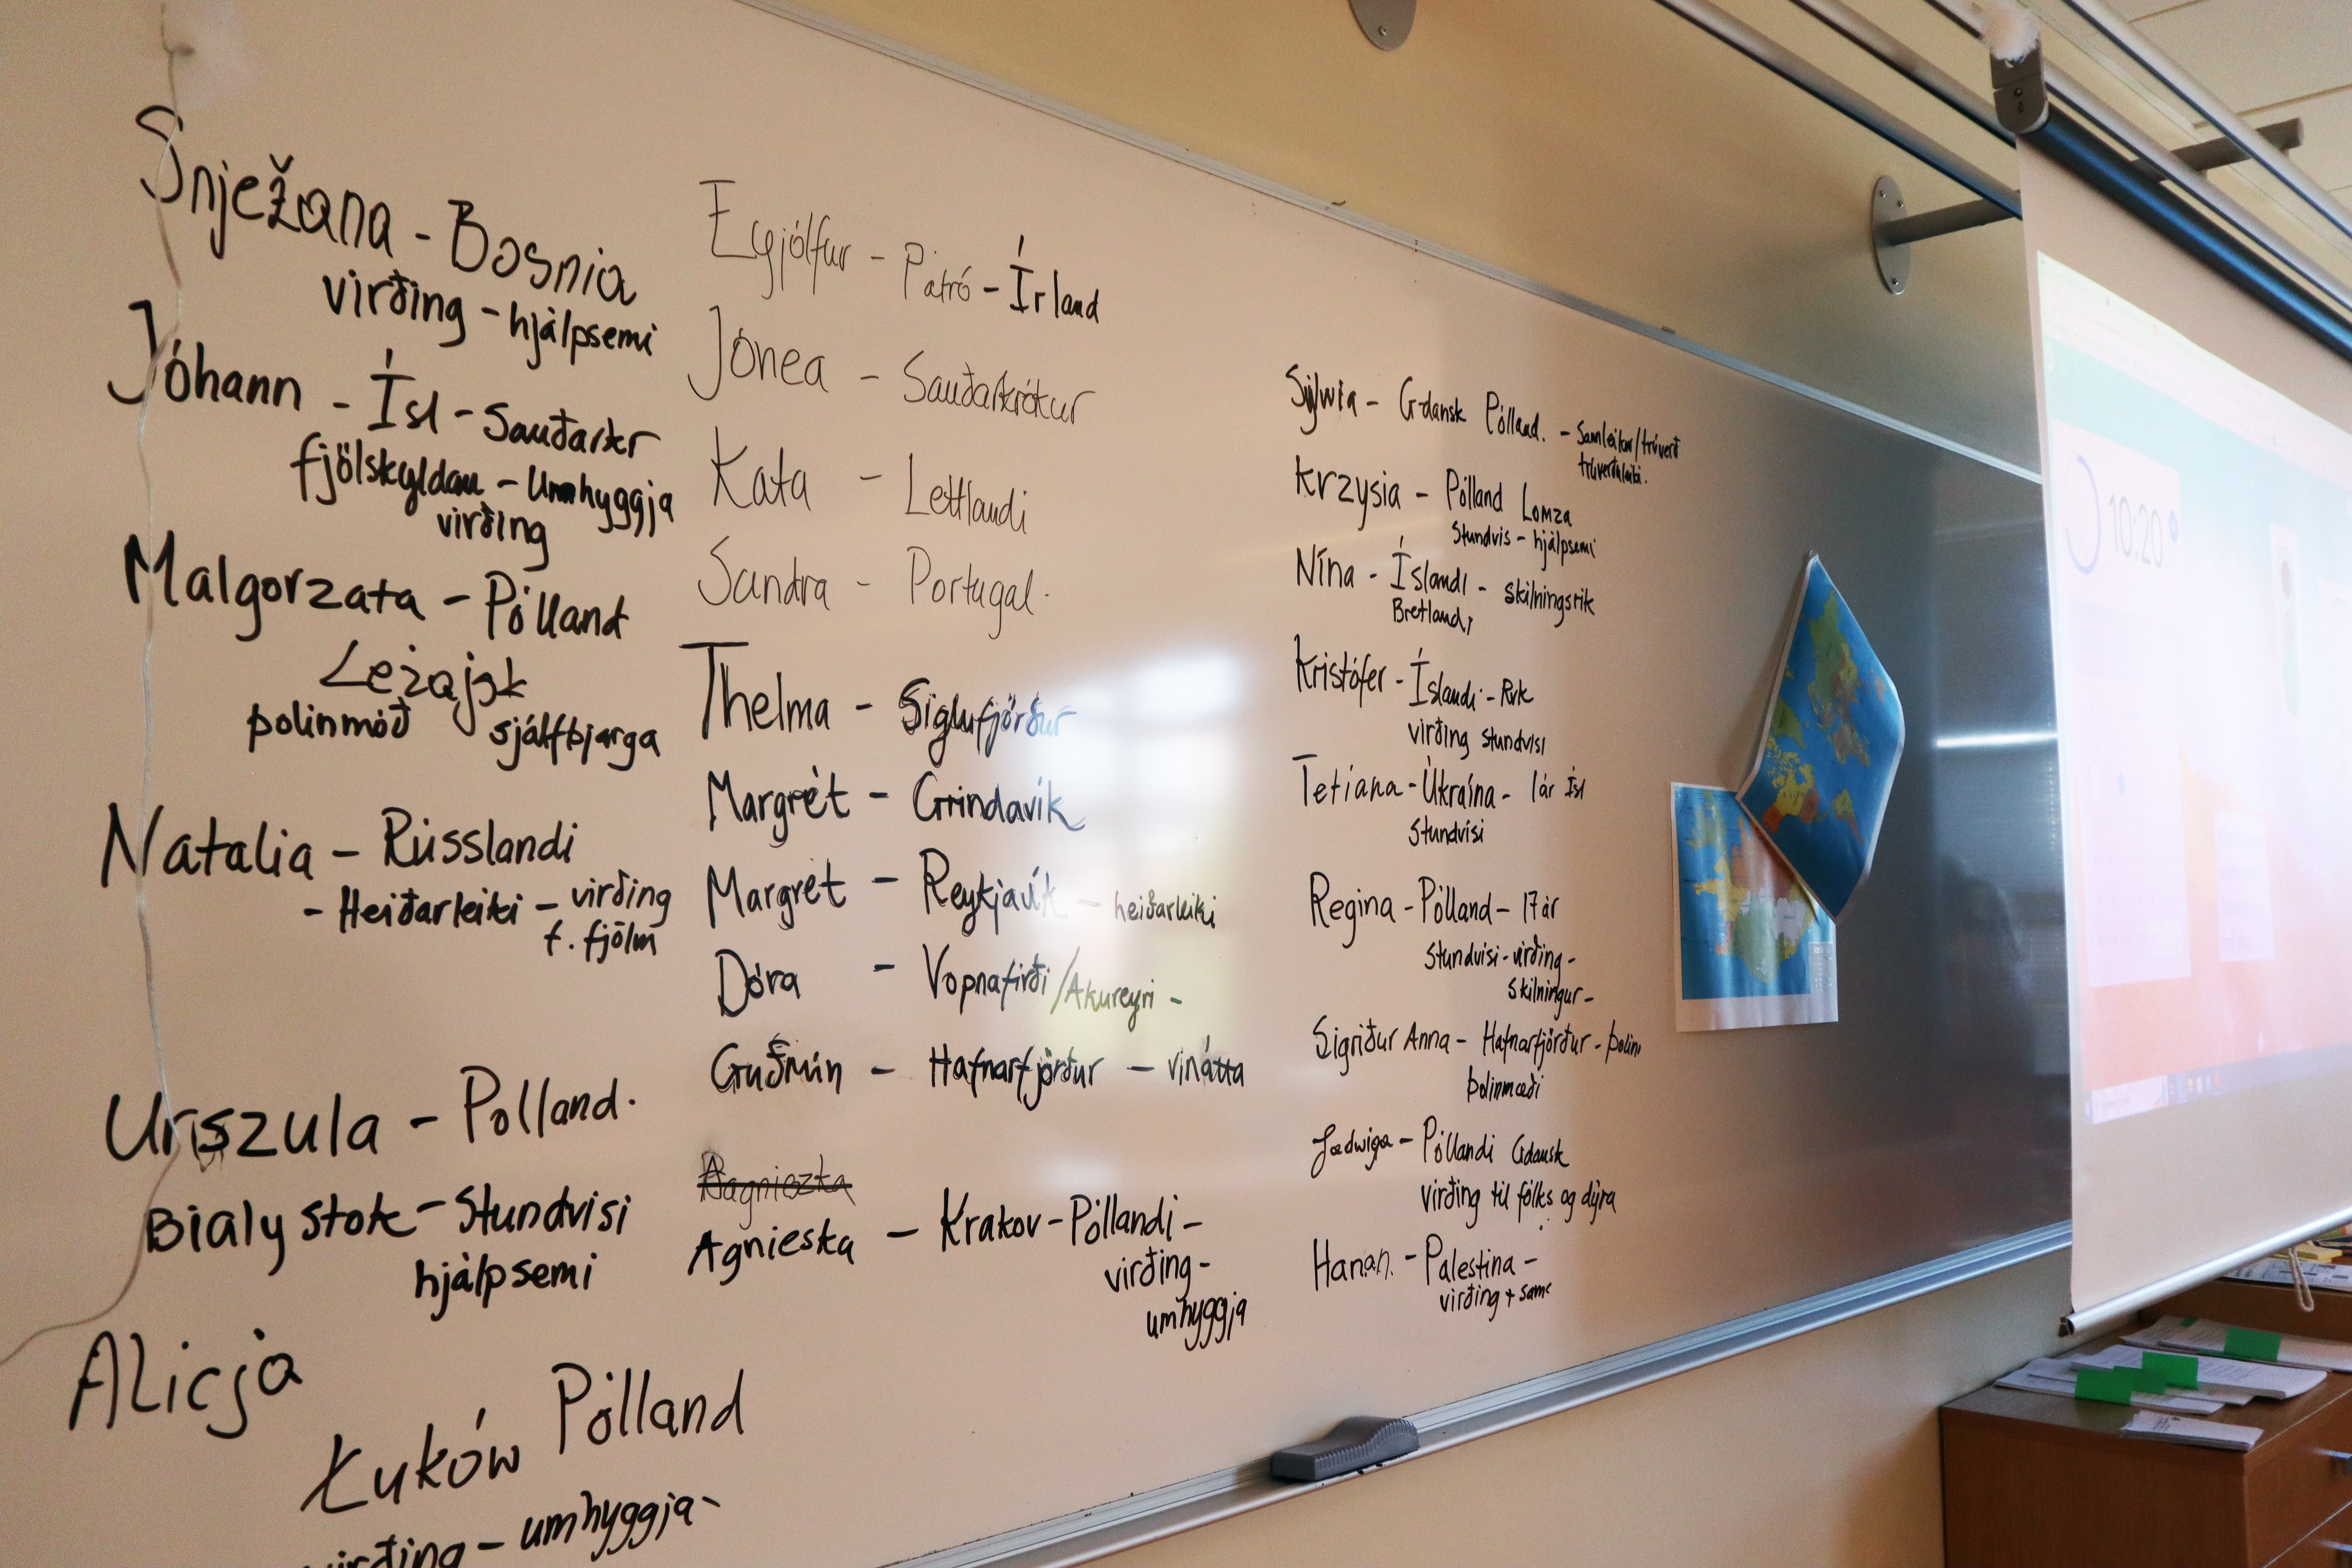 Snježana - Bosnia
virðing - hjálpsemi
Jóhann - Ísl - Sauðarkr
fjölskyldan - Umhyggja
virðing
Malgorzata - Pólland
Leżajsk
þolinmóð sjálfbjarga
Natalia - Rússlandi
- Heiðarleiki - virðing
f. fjölm
Urszula - Polland.
Bialystok - Stundvisi
hjálpsemi
Alicja
Łuków Pólland
virðing - umhyggja -
Eyjólfur - Patró - Írland
Jónea - Sauðarkrókur
Kata - Lettlandi
Sandra - Portugal.
Thelma - Siglufjörður
Margrét - Grindavík
Margrét - Reykjavík - heiðarleiki
Dóra - Vopnafirði / Akureyri -
Guðmín - Hafnarfjörður - vinátta
Agnieska - Krakov - Póllandi -
virðing -
umhyggja
Sylwia - Gdansk Pólland. - Samleikur / trúverð
Krzysia - Pólland Lomza
Stundvis - hjálpsemi
Nína - Íslandi - skilningsrik
Bretland,
Kristófer - Íslandi - Rvk
virðing stundvisi
Tetiana - Úkraína - 1 ár Ísl
Stundvísi
Regina - Pólland - 17 ár
Stundvisi - virðing -
skilningur -
Sigriður Anna - Hafnarfjörður - þolin
þolinmæði
Jadwiga - Póllandi Gdansk
virðing til fólks og dýra
Hanan - Palestina -
virðing + sam
10:20